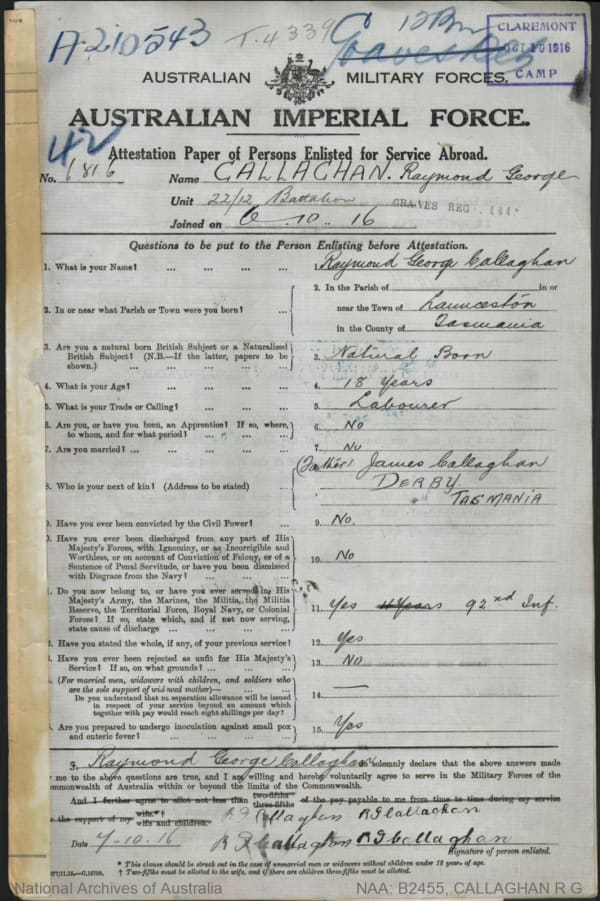 A-210543
T.4339
12 Bn
CLAREMONT
OCT 16 1916
CAMP
AUSTRALIAN MILITARY FORCES.
AUSTRALIAN IMPERIAL FORCE.
42
Attestation Paper of Persons Enlisted for Service Abroad.
No. 6816 Name CALLAGHAN. Raymond George
Unit 22/12 Battalion GRAVES REG.
Joined on 6.10.16
Questions to be put to the Person Enlisting before Attestation.
1. What is your Name? ... ... ... ... 1. Raymond George Callaghan
2. In or near what Parish or Town were you born? ... 2. In the Parish of in or
near the Town of Launceston
in the County of Tasmania
3. Are you a natural born British Subject or a Naturalised
British Subject? (N.B.—If the latter, papers to be
shown.) ... ... ... ... ... 3. Natural Born
4. What is your Age? ... ... ... ... 4. 18 Years
5. What is your Trade or Calling? ... ... ... 5. Labourer
6. Are you, or have you been, an Apprentice? If so, where,
to whom, and for what period? ... ... ... 6. No
7. Are you married? ... ... ... ... 7. No
8. Who is your next of kin? (Address to be stated) ... (Father) James Callaghan
DERBY
TASMANIA
9. Have you ever been convicted by the Civil Power? ... 9. No.
0. Have you ever been discharged from any part of His
Majesty's Forces, with Ignominy, or as Incorrigible and
Worthless, or on account of Conviction of Felony, or of a
Sentence of Penal Servitude, or have you been dismissed
with Disgrace from the Navy? ... ... ... 10. No
1. Do you now belong to, or have you ever served in, His
Majesty's Army, the Marines, the Militia, the Militia
Reserve, the Territorial Force, Royal Navy, or Colonial
Forces? If so, state which, and if not now serving,
state cause of discharge ... ... ... ... 11. Yes 4 Years 92nd Inf.
Have you stated the whole, if any, of your previous service? 12. Yes
Have you ever been rejected as unfit for His Majesty's
Service? If so, on what grounds? ... ... ... 13. No
(For married men, widowers with children, and soldiers who
are the sole support of widowed mother)—
Do you understand that no separation allowance will be issued
in respect of your service beyond an amount which
together with pay would reach eight shillings per day? 14. —
Are you prepared to undergo inoculation against small pox
and enteric fever? ... ... ... ... 15. Yes
I, Raymond George Callaghan solemnly declare that the above answers made
by me to the above questions are true, and I am willing and hereby voluntarily agree to serve in the Military Forces of the
Commonwealth of Australia within or beyond the limits of the Commonwealth.
And I further agree to allot not less than two-fifths three-fifths of the pay payable to me from time to time during my service
for the support of my wife.*† wife and children. R G Callaghan R G Callaghan
Date 7-10-16 R G Callaghan R G Callaghan
Signature of person enlisted.
* This clause should be struck out in the case of unmarried men or widowers without children under 18 years of age.
† Two-fifths must be allotted to the wife, and if there are children three-fifths must be allotted.
National Archives of Australia NAA: B2455, CALLAGHAN R G